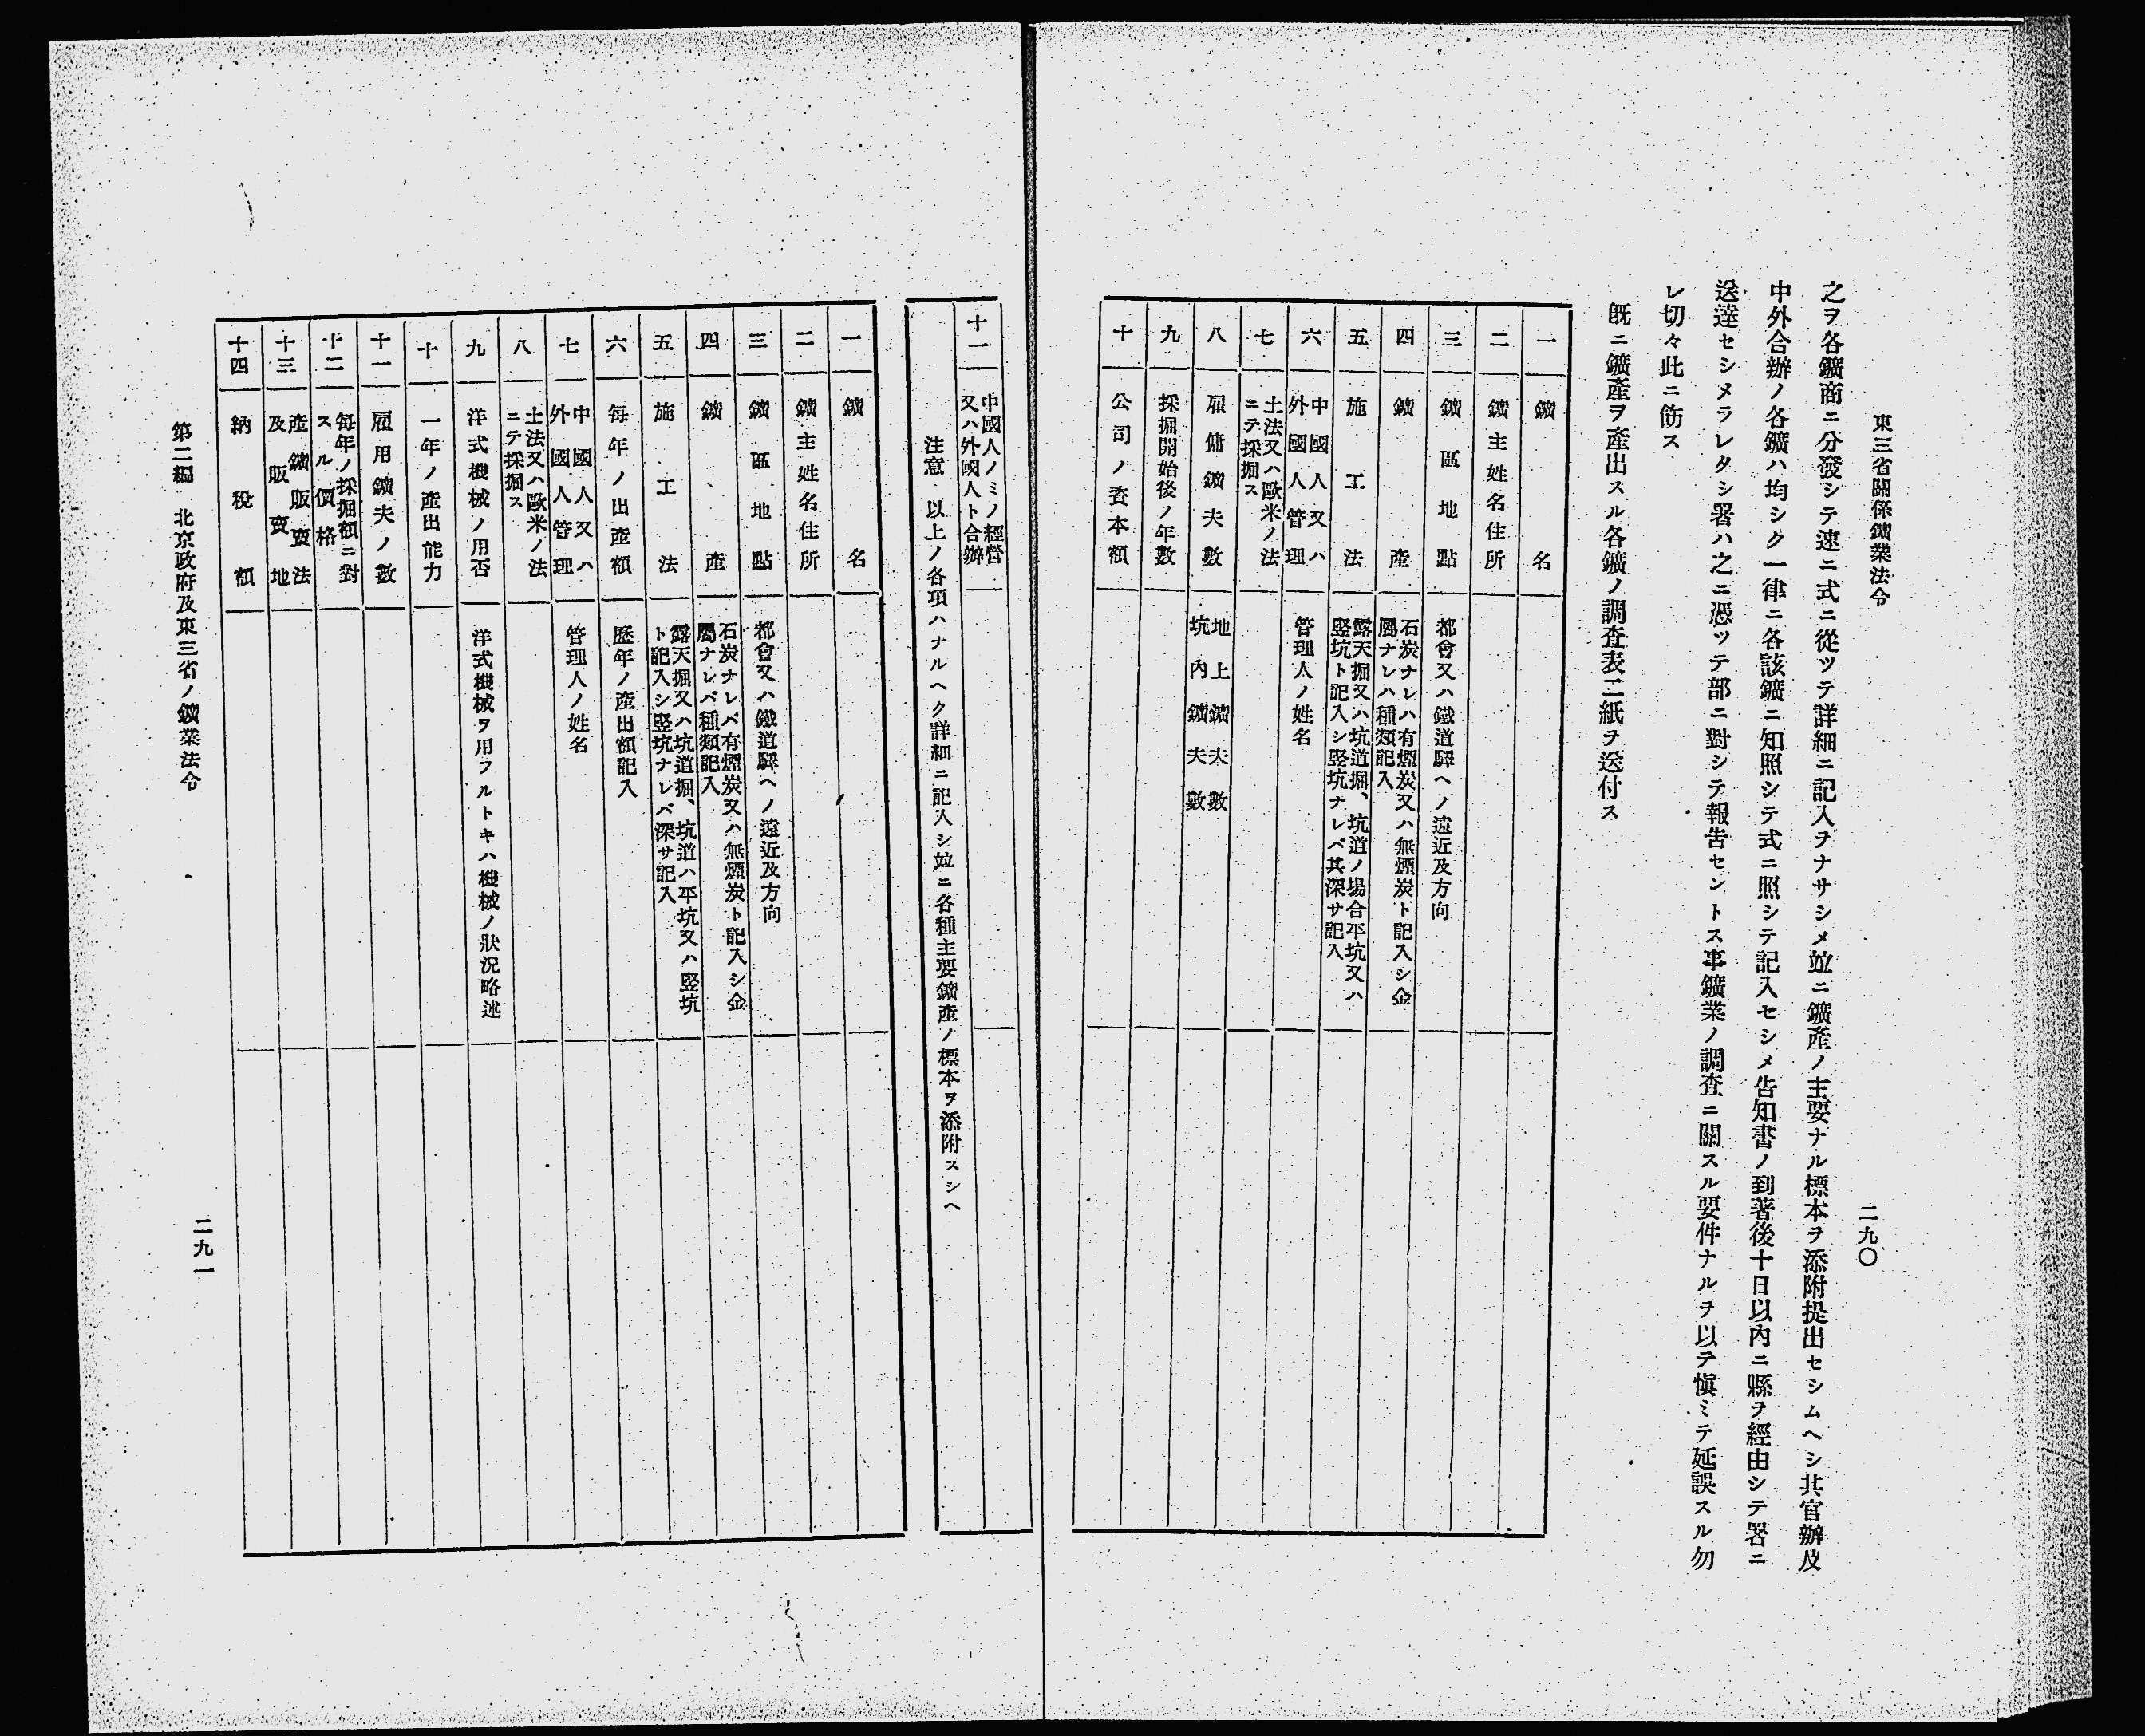 東三省關係鑛業法令
二九〇
之ヲ各鑛商ニ分發シテ速ニ式ニ從ツテ詳細ニ記入ヲナサシメ竝ニ鑛產ノ主要ナル標本ヲ添附提出セシムヘシ其官辦及
中外合辦ノ各鑛ハ均シク一律ニ各該鑛ニ知照シテ式ニ照シテ記入セシメ告知書ノ到著後十日以內ニ縣ヲ經由シテ署ニ
送達セシメラレタシ署ハ之ニ憑ツテ部ニ對シテ報吿セントス事鑛業ノ調査ニ關スル要件ナルヲ以テ愼ミテ延誤スル勿
レ切々此ニ筋ス
旣ニ鑛產ヲ產出スル各鑛ノ調査表二紙ヲ送付ス
一 鑛名
二 鑛主姓名住所
三 鑛區地點 都會又ハ鐵道驛ヘノ遠近及方向
四 鑛產 石炭ナレハ有煙炭又ハ無煙炭ト記入シ金
屬ナレハ種類記入
五 施工法 露天掘又ハ坑道掘、坑道ノ場合平坑又ハ
竪坑ト記入シ竪坑ナレバ其深サ記入
六 中國人又ハ
外國人管理 管理人ノ姓名
七 土法又ハ歐米ノ法
ニテ採掘ス
八 雇傭鑛夫數 地上鑛夫數
坑內鑛夫數
九 採掘開始後ノ年數
十 公司ノ資本額
十一 中國人ノミノ經營
又ハ外國人ト合辦
注意 以上ノ各項ハナルヘク詳細ニ記入シ竝ニ各種主要鑛產ノ標本ヲ添附スシヘ
一 鑛名
二 鑛主姓名住所
三 鑛區地點 都會又ハ鐵道驛ヘノ遠近及方向
四 鑛產 石炭ナレバ有煙炭又ハ無煙炭ト記入シ金
屬ナレバ種類記入
五 施工法 露天掘又ハ坑道掘、坑道ハ平坑又ハ竪坑
ト記入シ竪坑ナレバ深サ記入
六 每年ノ出產額 歷年ノ產出額記入
七 中國人又ハ
外國人管理 管理人ノ姓名
八 土法又ハ歐米ノ法
ニテ採掘ス
九 洋式機械ノ用否 洋式機械ヲ用フルトキハ機械ノ狀況略述
十 一年ノ產出能力
十一 雇用鑛夫ノ數
十二 每年ノ採掘額ニ對
スル價格
十三 產鑛販賣法
及販賣地
十四 納稅額
第二編 北京政府及東三省ノ鑛業法令
二九一